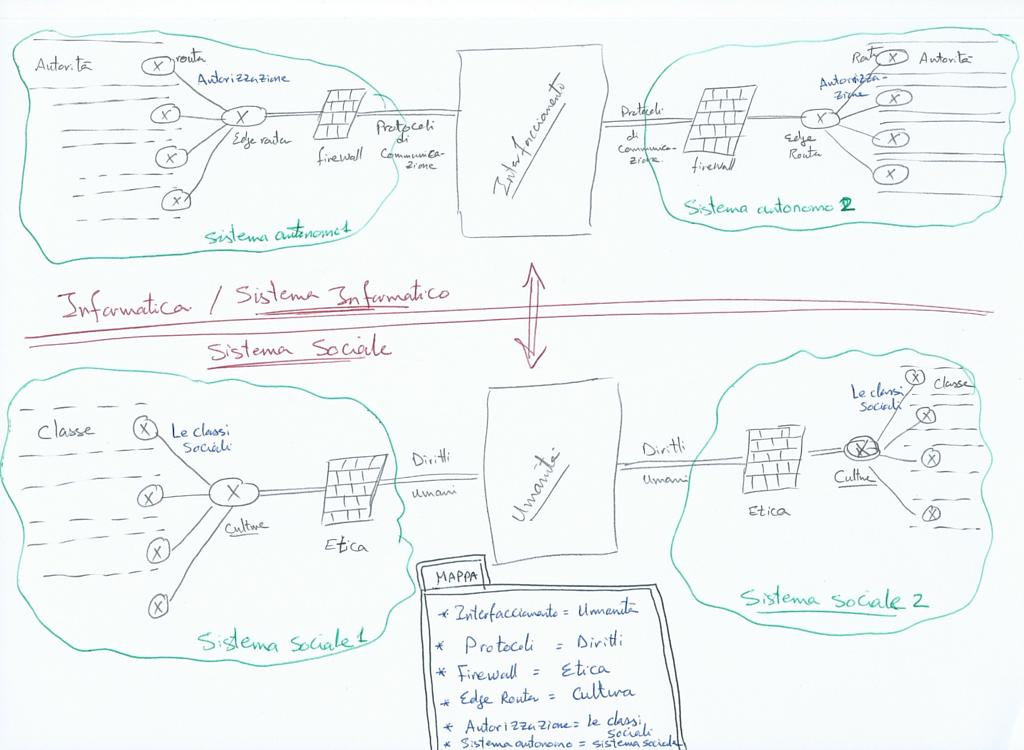 Autorità
routa
Autorizzazione
Edge routa
firewall
Protocoli
di
Communica-
zione
Sistema autonomo 1
Interfacciamento
Protocoli
di
Communica-
zione
firewall
Edge
Routa
Autorizza-
zione
Rout
Autorità
Sistema autonomo 2
Informatica / Sistema Informatico
Sistema Sociale
Classe
Le classi
Sociali
Culture
Etica
Diritti
umani
Sistema Sociale 1
Umanità
Diritti
Umani
Etica
Culture
Le classi
Sociali
Classe
Sistema Sociale 2
MAPPA
* Interfacciamento = Umanità
* Protocoli = Diritti
* Firewall = Etica
* Edge Router = Cultura
* Autorizzazione = Le classi
sociali
* Sistema autonomo = sistema sociale